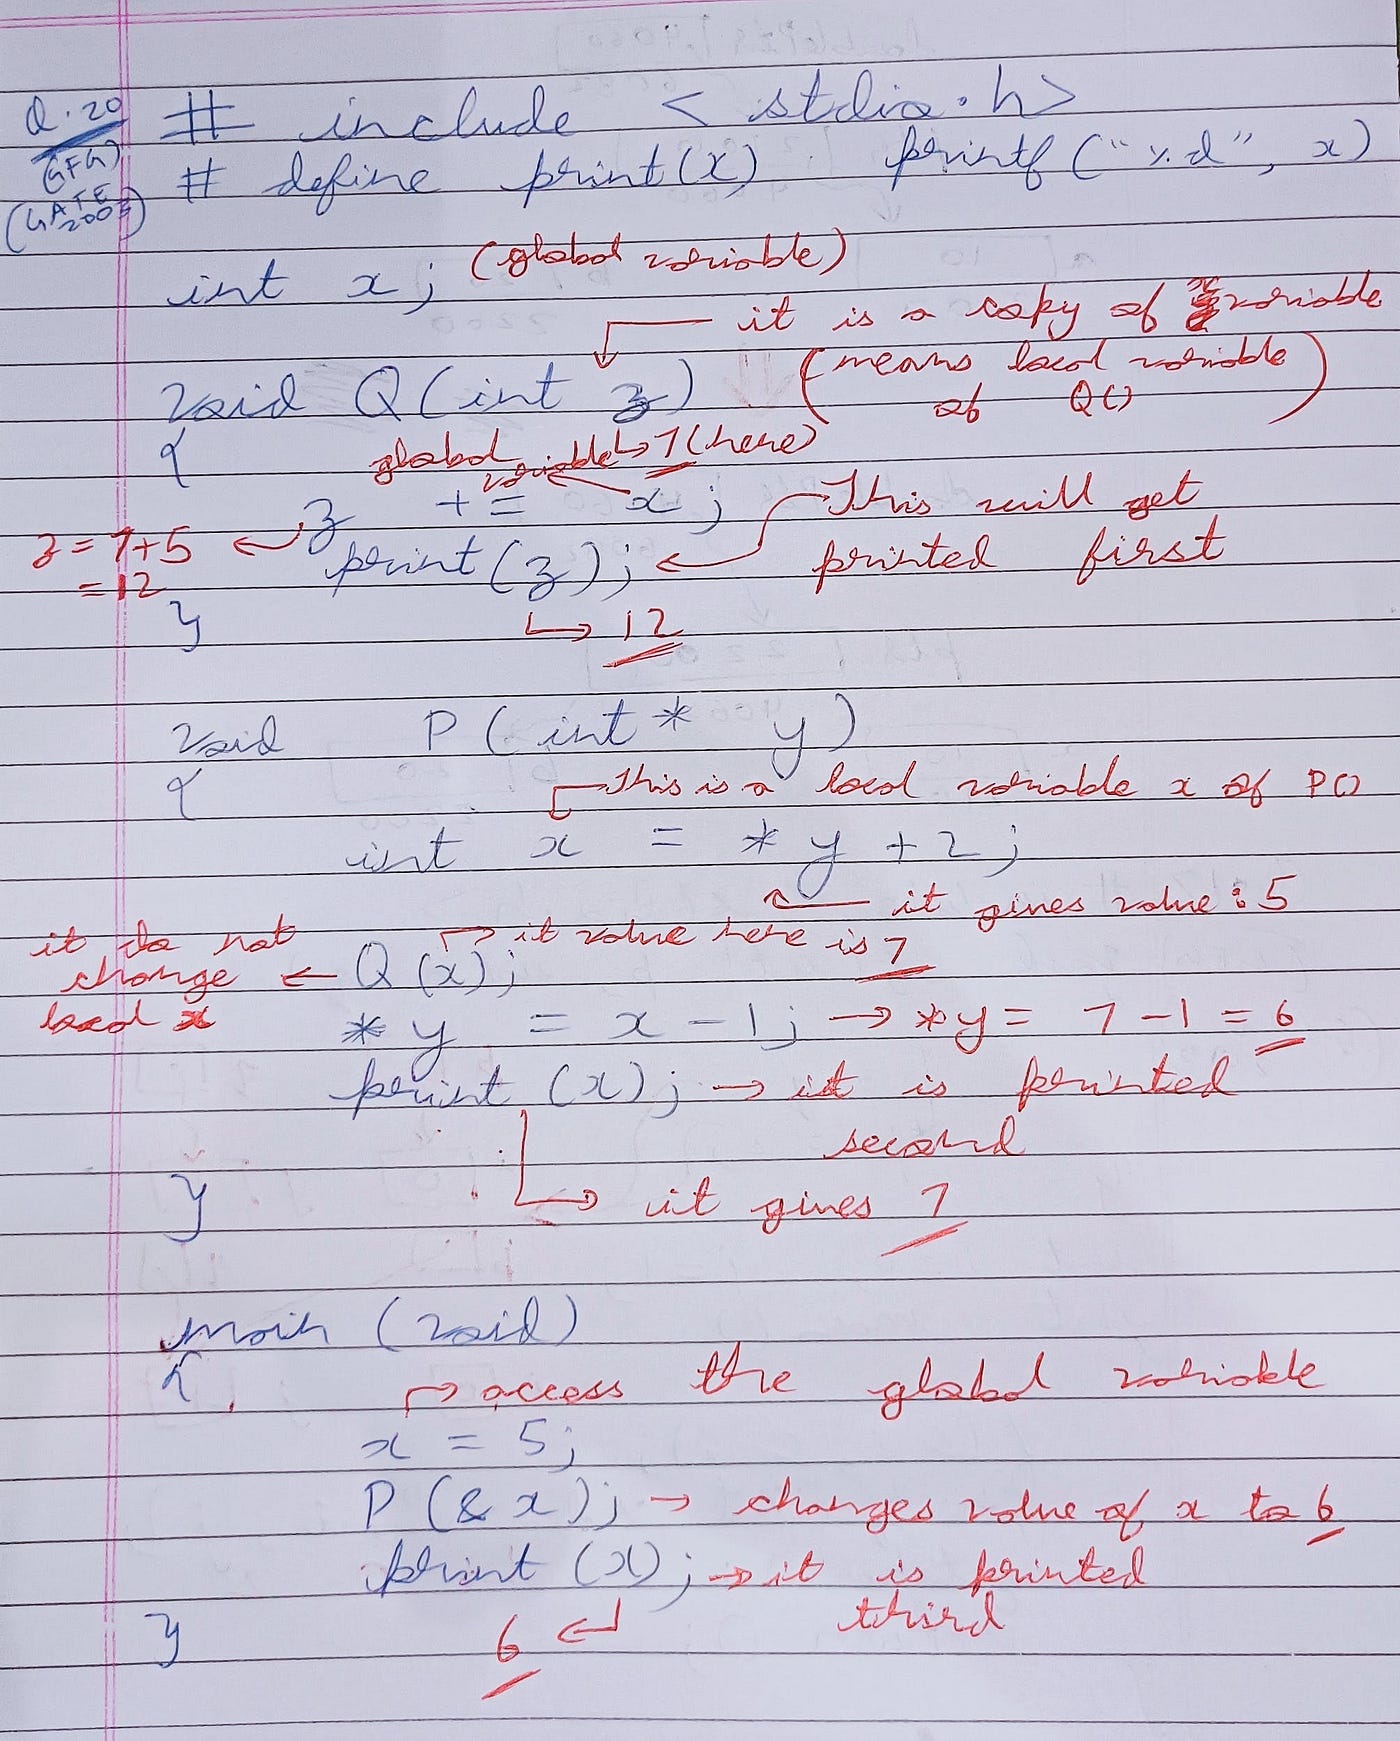 Q.20 # include < stdio.h>
(GFG) # define print(x) printf ("%d", x)
(GATE 2003)
int x; (global variable)
it is a copy of x variable
void Q(int z) (means local variable of Q())
{ global variable → 7 (here)
z += x; This will get
z = 7+5 print(z); printed first
= 12
} → 12
void P(int* y)
{ This is a local variable x of P()
int x = *y+2;
it gives value : 5
it do not it value here is 7
change ← Q(x);
local x *y = x-1; → *y = 7-1 = 6
print (x); → it is printed
second
} → it gives 7
main (void)
{ access the global variable
x = 5;
P(&x); → changes value of x to 6
print (x); → it is printed
} 6 third